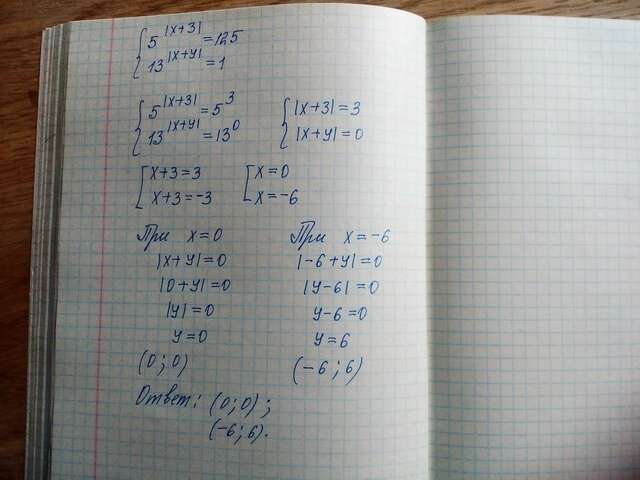 5^|x+3| = 125
13^|x+y| = 1
5^|x+3| = 5^3
13^|x+y| = 13^0
|x+3| = 3
|x+y| = 0
x+3 = 3
x+3 = -3
x = 0
x = -6
При x = 0
|x+y| = 0
|0+y| = 0
|y| = 0
y = 0
(0; 0)
При x = -6
|-6+y| = 0
|y-6| = 0
y-6 = 0
y = 6
(-6; 6)
Ответ: (0; 0);
(-6; 6).